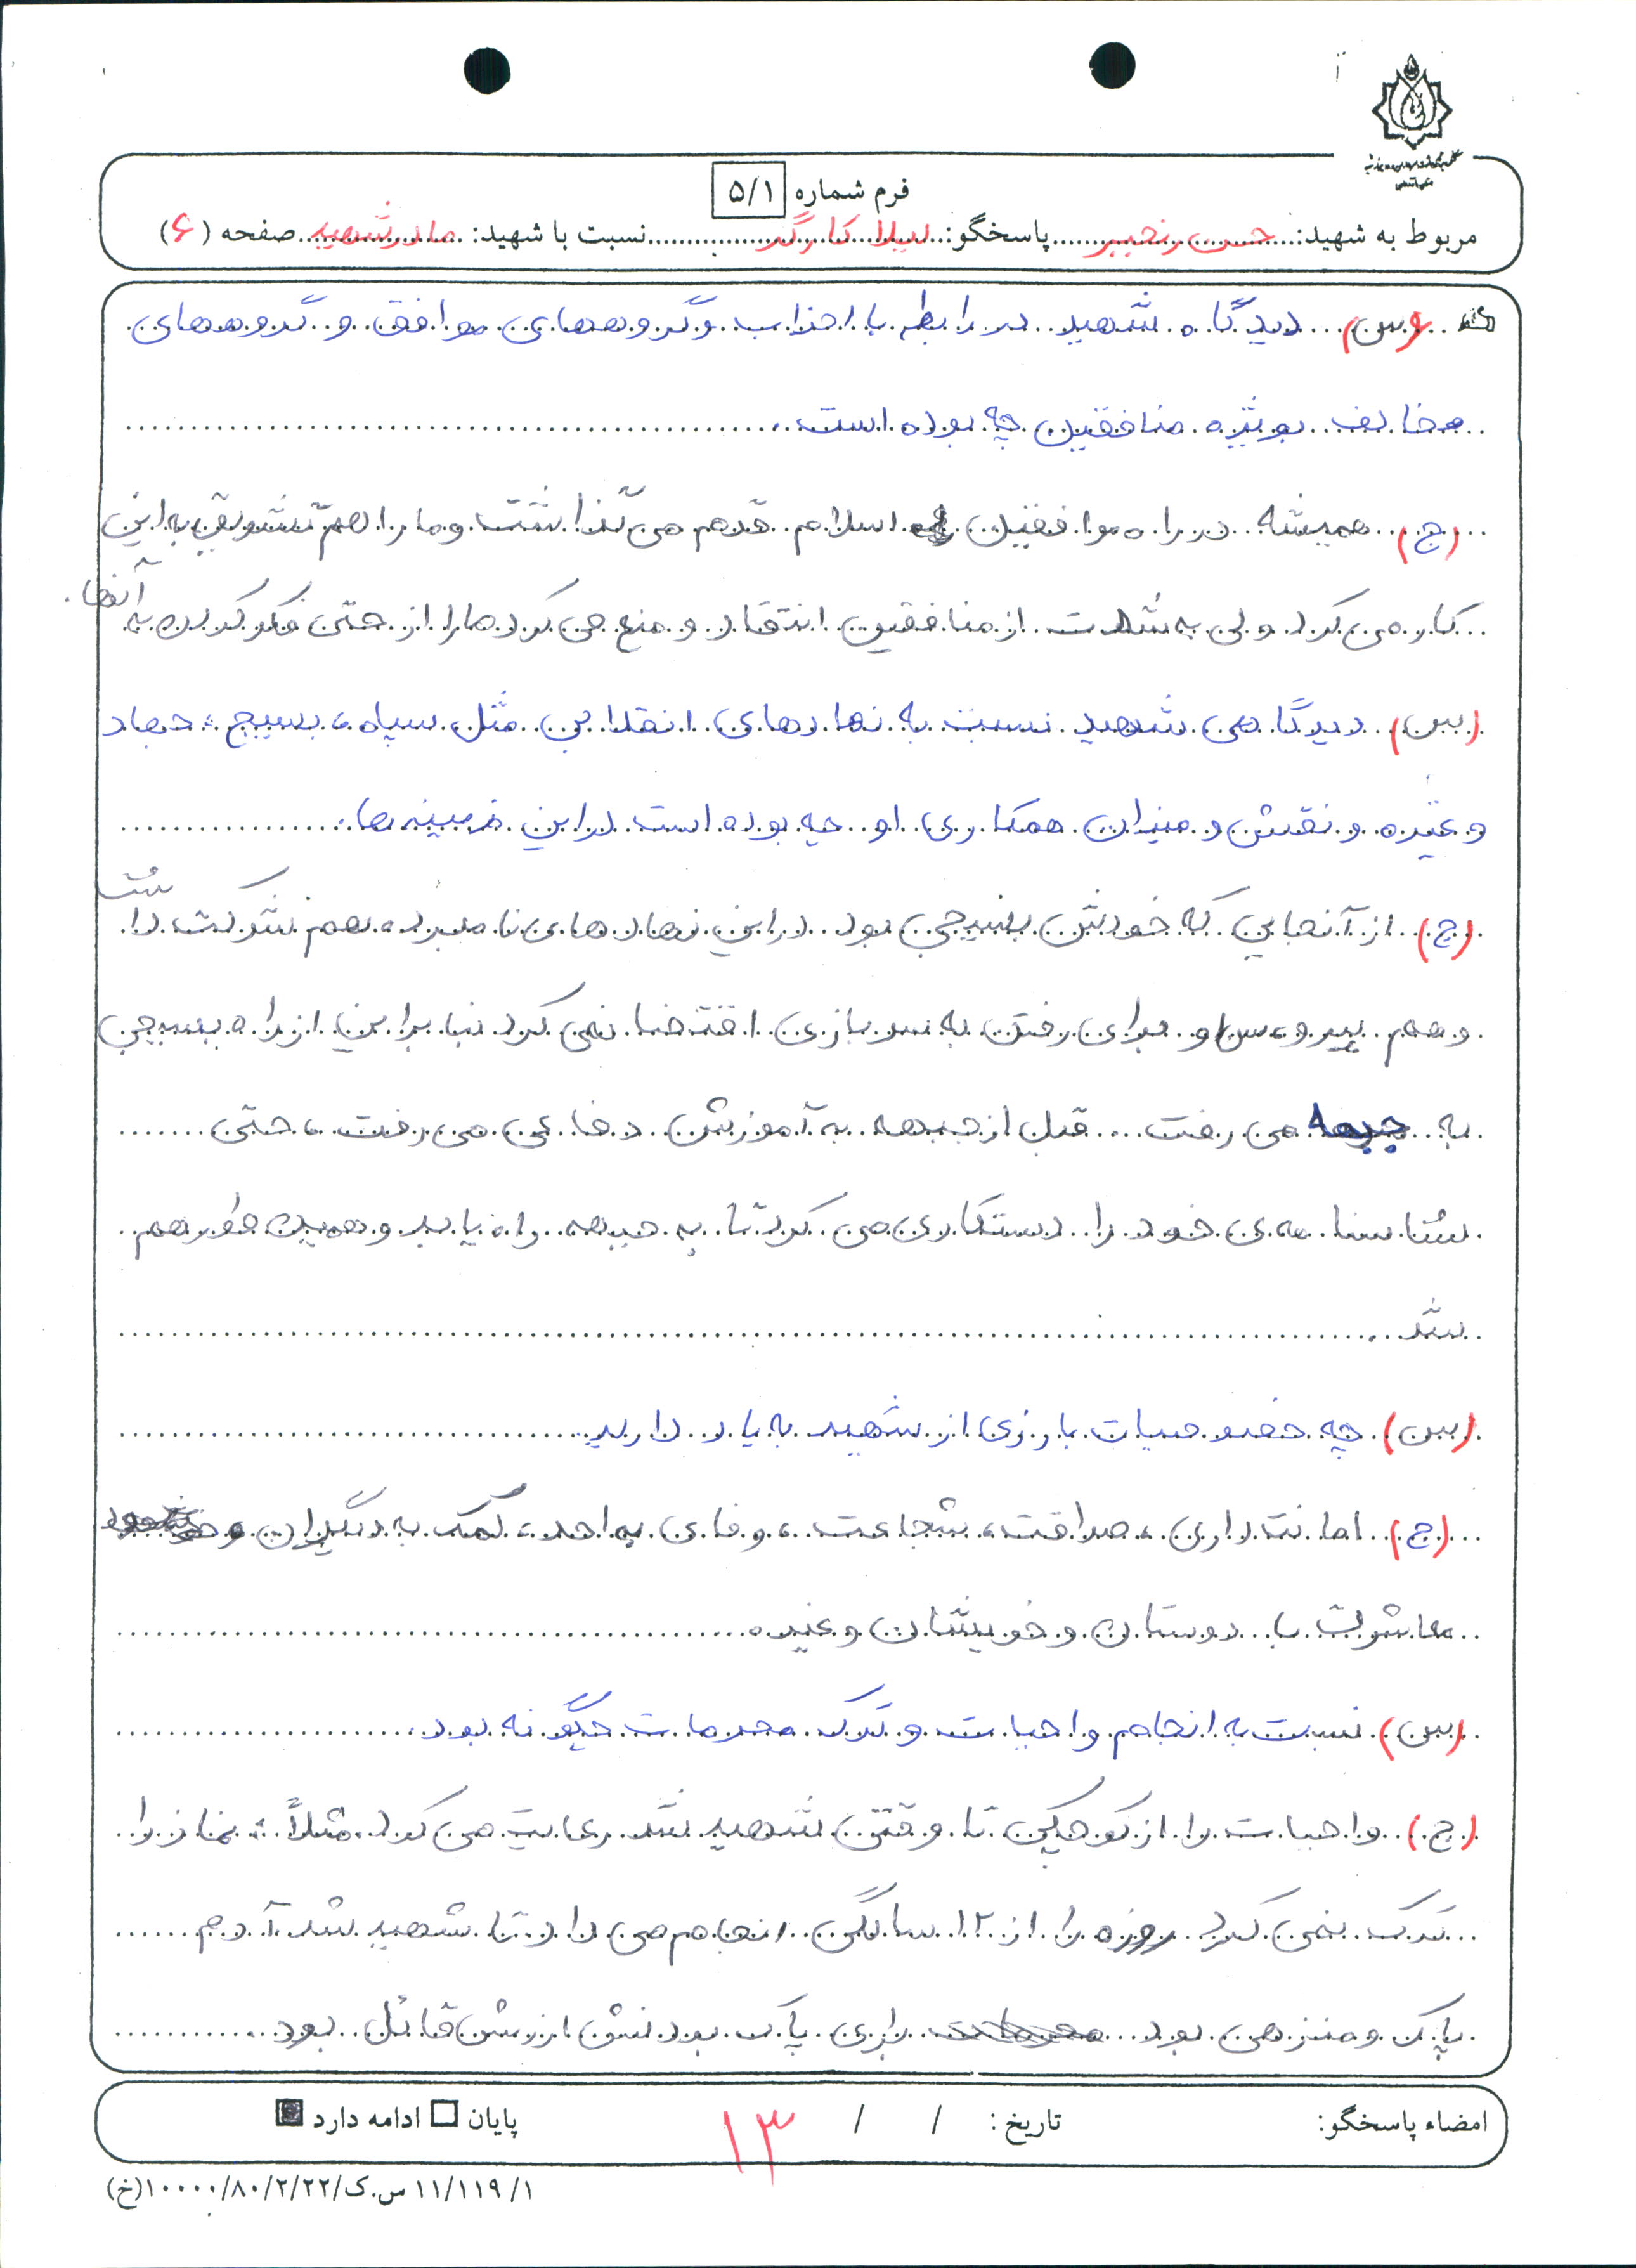 فرم شماره ۵/۱
مربوط به شهید: حسن رنجبر پاسخگو: لیلا کارگر نسبت با شهید: مادر شهید صفحه (۶)
س) دیدگاه شهید در رابطه با احزاب و گروههای موافق و گروههای
مخالف بویژه منافقین چه بوده است.
(ج) همیشه در راه موافقین اسلام قدم می گذاشت و ما را هم تشویق به این
کار می کرد ولی به شدت از منافقین انتقاد و منع می کرد ما را از حتی فکر کردن به آنها.
(س) دیدگاهی شهید نسبت به نهادهای انقلابی مثل سپاه، بسیج، جهاد
و غیره و نقش و میزان همکاری او چه بوده است در این زمینه ها.
(ج) از آنجایی که خودش بسیجی بود در این نهادهای نامبرده هم شرکت داشت
و هم سن او برای رفتن به سربازی اقتضا نمی کرد بنابراین از راه بسیجی
به جبهه می رفت... قبل از جبهه به آموزش دفاعی می رفت، حتی
شناسنامه ی خود را دستکاری می کرد تا به جبهه راه یابد و همین طور هم
شد.
(س) چه خصوصیات بارزی از شهید به یاد دارید.
(ج) امانتداری، صداقت، شجاعت، وفای به احد، کمک به دیگران و
معاشرت با دوستان و خویشان و غیره.
(س) نسبت به انجام واجبات و ترک محرمات چگونه بود.
(ج) واجبات را از کوچکی تا وقتی شهید شد رعایت می کرد. مثلاً: نماز را
ترک نمی کرد روزه را از ۱۲ سالگی انجام می داد تا شهید شد. آدم
پاک و منزهی بود برای پاک بودنش ارزش قائل بود.
امضاء پاسخگو: تاریخ: / / ۱۳ پایان ادامه دارد
۱۱/۱۱۹/۱ س.ک/۱۰۰۰۰/۸۰/۲/۲۲(خ)